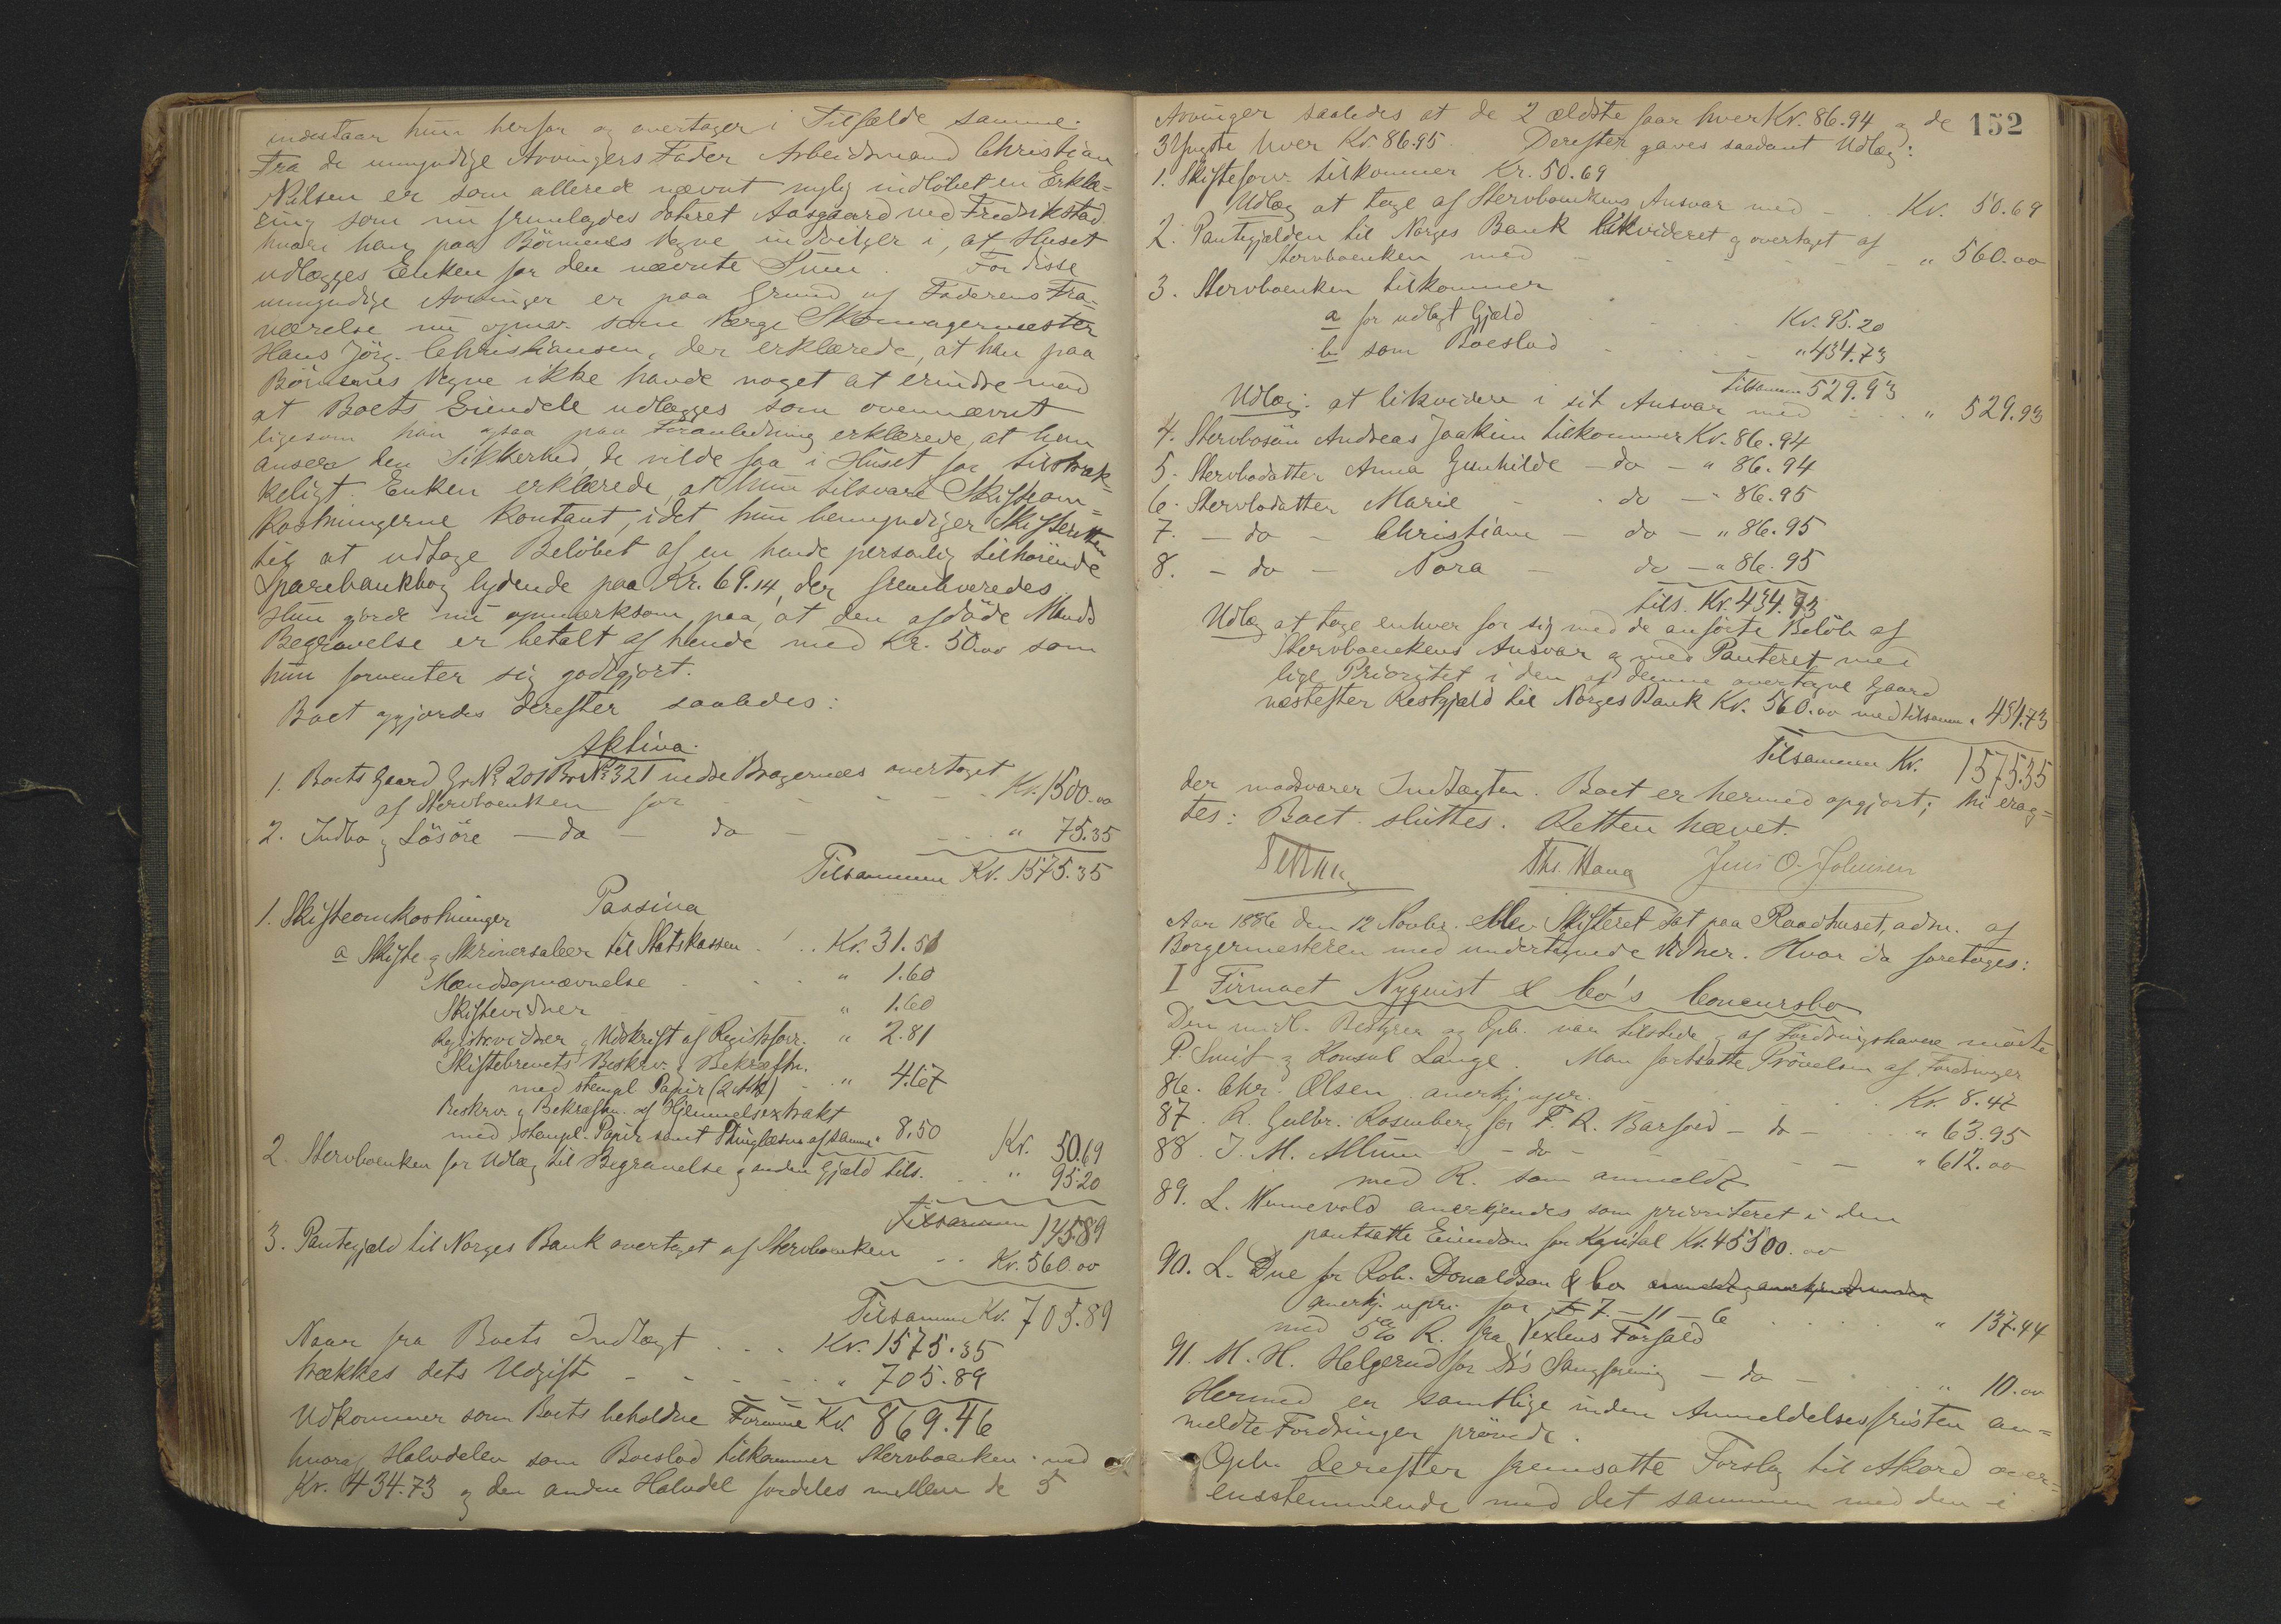 indestaar hun herfor og overtager i Tilfælde samme.
Fra de umyndige Arvingers Fader Arbeidsmand Christian
Nilsen er som allerede nævnt nylig indløbet en Erklæ=
ring som nu fremlagdes dateret Aasgaard ved Fredrikstad
hvori han paa Børnenes Vegne indvilger i, at Huset
udlægges Enken for den nævnte Sum. For disse
umyndige Arvinger er paa Grund af Faderens Fra=
værelse nu opnæv. som Værge Skomagermester
Hans Jörg. Christiansen, der erklærede, at han paa
Børnenes Vegne ikke havde noget at erindre mod
at Boets Eiendele udlægges som ovennævnt
ligesom han ogsaa paa Foranledning erklærede, at han
anser den Sikkerhed, de vilde faa i Huset for tilstræk=
keligt. Enken erklærede, at hun tilsvare Skifteom=
kostningerne kontant, idet hun bemyndiger Skifteretten
til at udtage Beløbet af en hende personlig tilhørende
Sparebankbog lydende paa Kr. 69.14, der fremleveredes
Hun gjorde nu opmærksom paa, at den afdøde Mands
Begravelse er betalt af hende med Kr. 50.00 som
hun forventer sig godtgjort.
Boet opgjordes derefter saaledes:
Aktiva.
1. Boets Gaard Gr No 201 Br No 321 nedre Bragernæs overtaget
af Stervboenken for - - - - Kr. 1500.00
2. Indbo og Løsøre - do - do - - - " 75.35
Tilsammen Kr. 1575.35
Passiva
1. Skifteomkostninger
a Skifte- og Skriversalær til Statskassen . . . Kr. 31.51
Mændsopnævnelse - . . " 1.60
Skiftevidner " 1.60
Registrvidner og Udskrift af Registrforr. " 2.81
Skiftebrevets Beskriv. og Bekræftn.
med stempl. Papir (2 Ark) - " 4.67
Beskriv. og Bekræftn. af Hjemmelsextrakt
med stempl. Papir samt Thinglæsn. af samme " 8.50
Kr. 50.69
2. Stervboenken for Udlæg til Begravelse og anden Gjæld tils. . . " 95.20
Tilsammen 145.89
3. Pantegjæld til Norges Bank overtaget af Stervboenken . . Kr. 560.00
Tilsammen Kr. 705.89
Naar fra Boets Indtægt . . . Kr. 1575.35
trækkes dets Udgift - - - - " 705.89
Udkommer som Boets beholdne Formue Kr. 869.46
hvoraf Halvdelen som Boeslod tilkommer Stervboenken med
Kr. 434.73 og den anden Halvdel fordeles mellem de 5
152
Arvinger saaledes at de 2 ældste faar hver Kr. 86.94 og de
3 yngste hver Kr. 86.95. Derefter gaves saadant Udlæg:
1. Skifteforv. tilkommer Kr. 50.69
Udlæg at tage af Stervboenkens Ansvar med - . . Kr. 50.69
2. Pantegjælden til Norges Bank likvideret og overtaget af
Stervboenken med - - - - - " 560.00
3. Stervboenken tilkommer
a for udlagt Gjæld - - - Kr. 95.20
b som Boeslod - - - " 434.73
Tilsammen 529.93
Udlæg: at likvidere i sit Ansvar med - - - " 529.93
4. Stervbosøn Andreas Joakim tilkommer Kr. 86.94
5. Stervbodatter Anna Gunhilde - do - " 86.94
6. Stervbodatter Marie - - do - " 86.95
7. - do - Christiane - do - " 86.95
8. - do - Nora - do - " 86.95
tils. Kr. 434.73
Udlæg at tage enhver for sig med de anførte Beløb af
Stervboenkens Ansvar og med Panteret med
lige Prioritet i den af denne overtagne Gaard
næstefter Restgjæld til Norges Bank Kr. 560.00 med tilsammen " 434.73
Tilsammen Kr. 1575.35
der modsvarer Indtægten. Boet er hermed opgjort; thi erag=
tes: Boet sluttes. Retten hævet.
Ths. Haug Jens O. Johnsen
Aar 1886 den 12 Novbr. blev Skifteret sat paa Raadhuset, adm. af
Borgermesteren med undertegnede Vidner. Hvor da foretoges:
I Firmaet Nyquist & Co's Concursbo
Den midl. Bestyrer og Opb. var tilstede og af Fordringshavere mødte
P. Smit og Konsul Lange. Man fortsatte Prøvelsen af Fordringer
86. Chr. Olsen anerkj. upr. . . . . Kr. 8.47
87. R. Gulbr. Rosenberg for F. R. Barford - do - . . " 63.95
88. J. M. Allum - do - - - - " 612.00
med R. som anmeldt
89. L. Wunevold anerkjendes som prioriteret i den
pantsatte Eiendom for Kapital Kr. 45500.00
90. L. Due for Rob. Donaldson & Co
anerkj. upr. for £ 7-11-6 . . . . " 137.44
med 5% R. fra Vexlens Forfald
91. M. H. Helgerud for D's Sangforening - do - . . " 10.00
Hermed er samtlige inden Anmeldelsesfristen an=
meldte Fordringer prøvede.
Opb. derefter fremsatte Forslag til Akord over=
ensstemmende med det sammen med den i